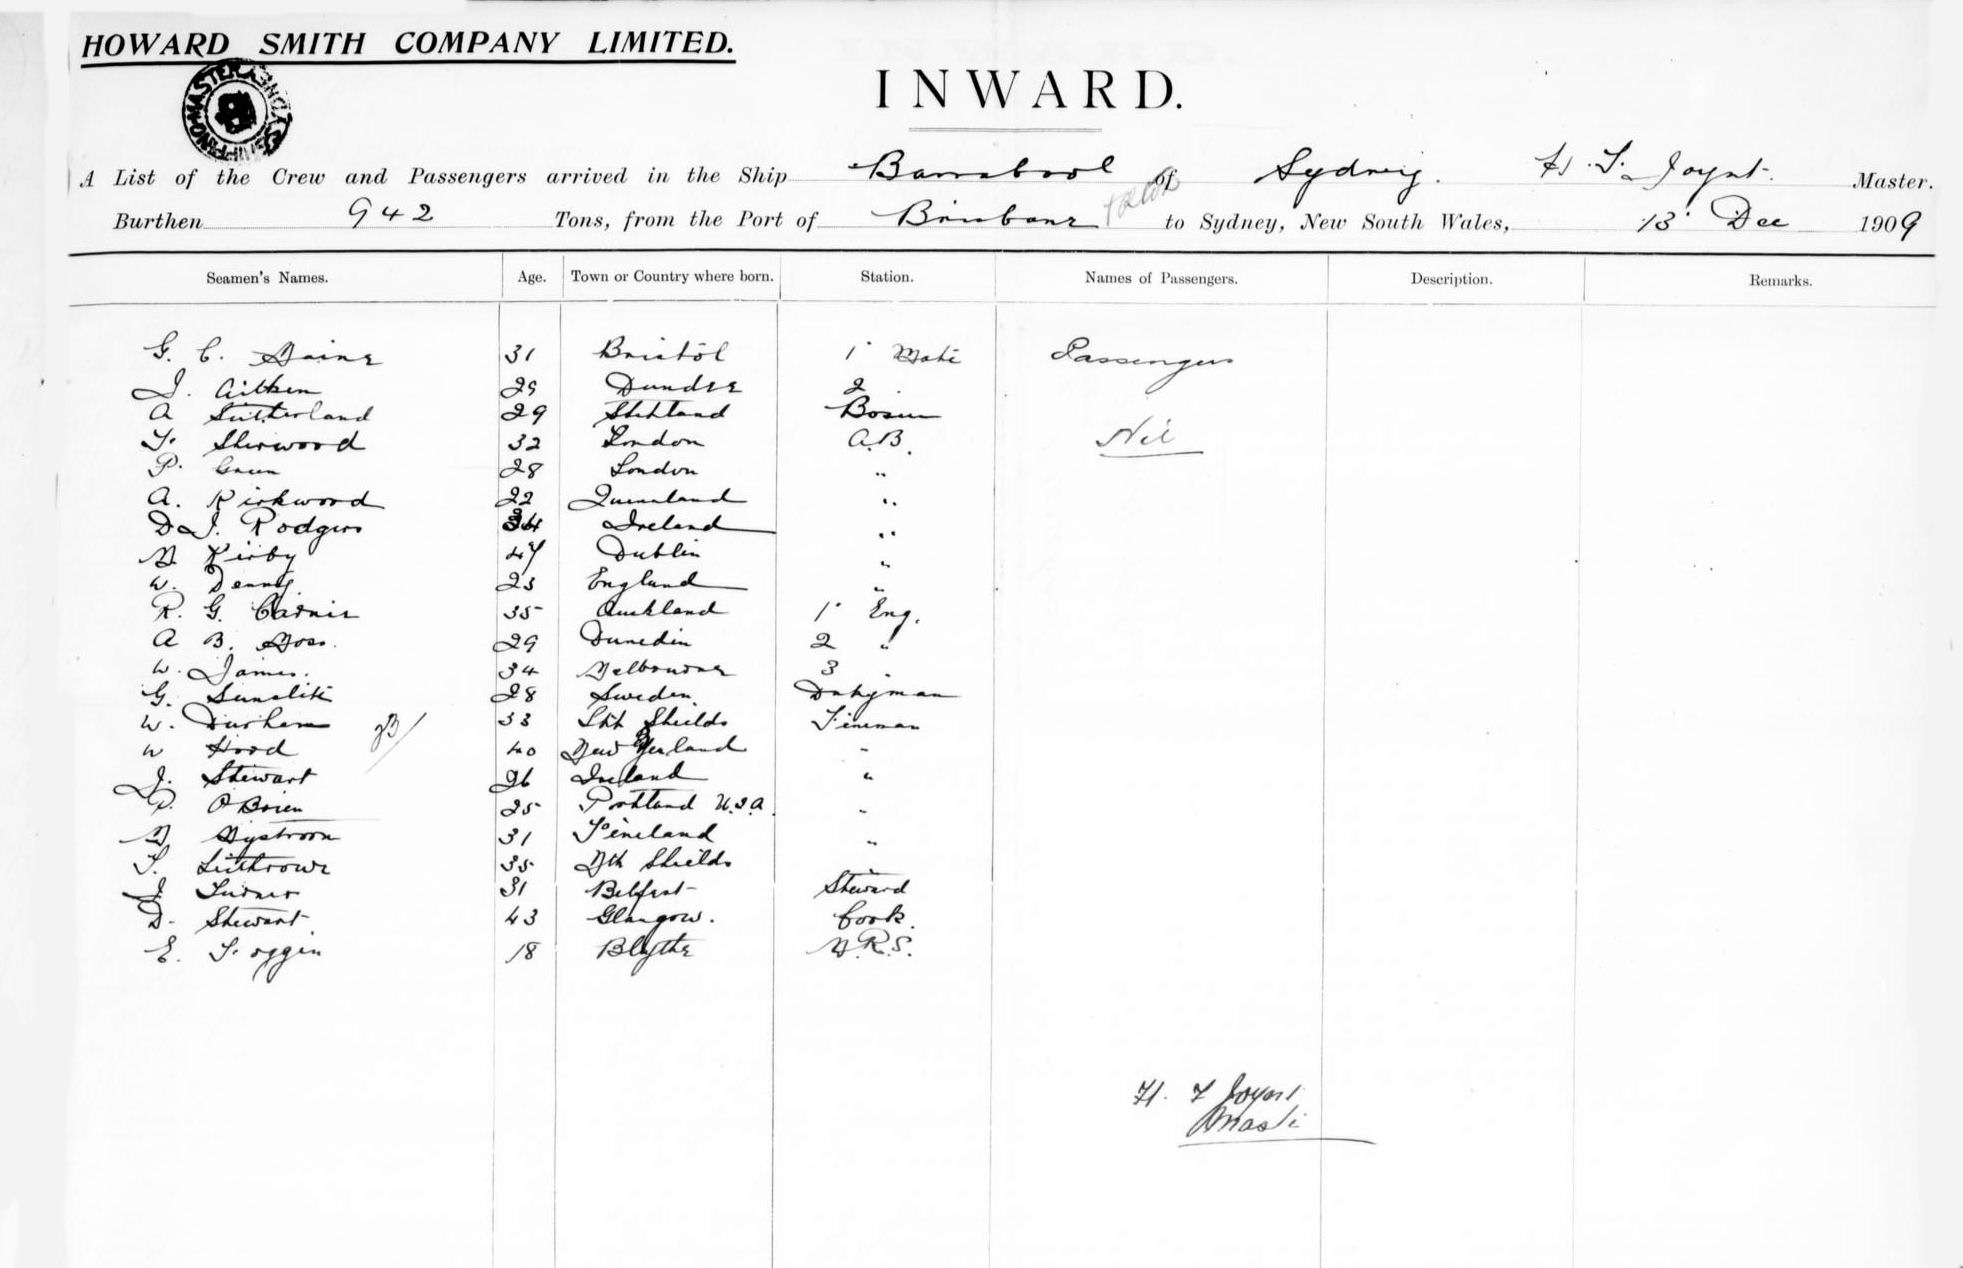 HOWARD SMITH COMPANY LIMITED.
SHIPPING MASTER SYDNEY
INWARD.
A List of the Crew and Passengers arrived in the Ship Barrabool of Sydney. H. F. Joynt. Master.
Burthen 942 Tons, from the Port of Brisbane to Sydney, New South Wales, 13 Dec 1909
Seamen's Names. Age. Town or Country where born. Station. Names of Passengers. Description. Remarks.
G. C. 31 Bristol 1 Mate Passengers
J. Aitken 29 Dundee 2 "
A Sutherland 29 Shetland Bosun
F. Sherwood 32 London A.B. Nil
P. Green 28 London "
A. Kirkwood 22 Queensland "
D J. Rodgers 34 Ireland "
M Kirby 47 Dublin "
W. Denny 23 England "
R. G. 35 Auckland 1 Eng.
A B. Moss. 29 Dunedin 2 "
W. James. 34 Melbourne 3 "
G. 28 Sweden. Dnkyman
W. Durham 33 Sth Shields Fireman
W Hood 40 New Zealand "
J. Stewart 26 Ireland "
P. O'Brien 25 Portland U.S.A. "
M Nystrom 31 Fineland "
T. 35 Nth Shields "
J Turner 31 Belfast Steward
D. Stewart 43 Glasgow. Cook.
E. Foggin 18 Blythe M.R.S.
H. F Joynt
Master